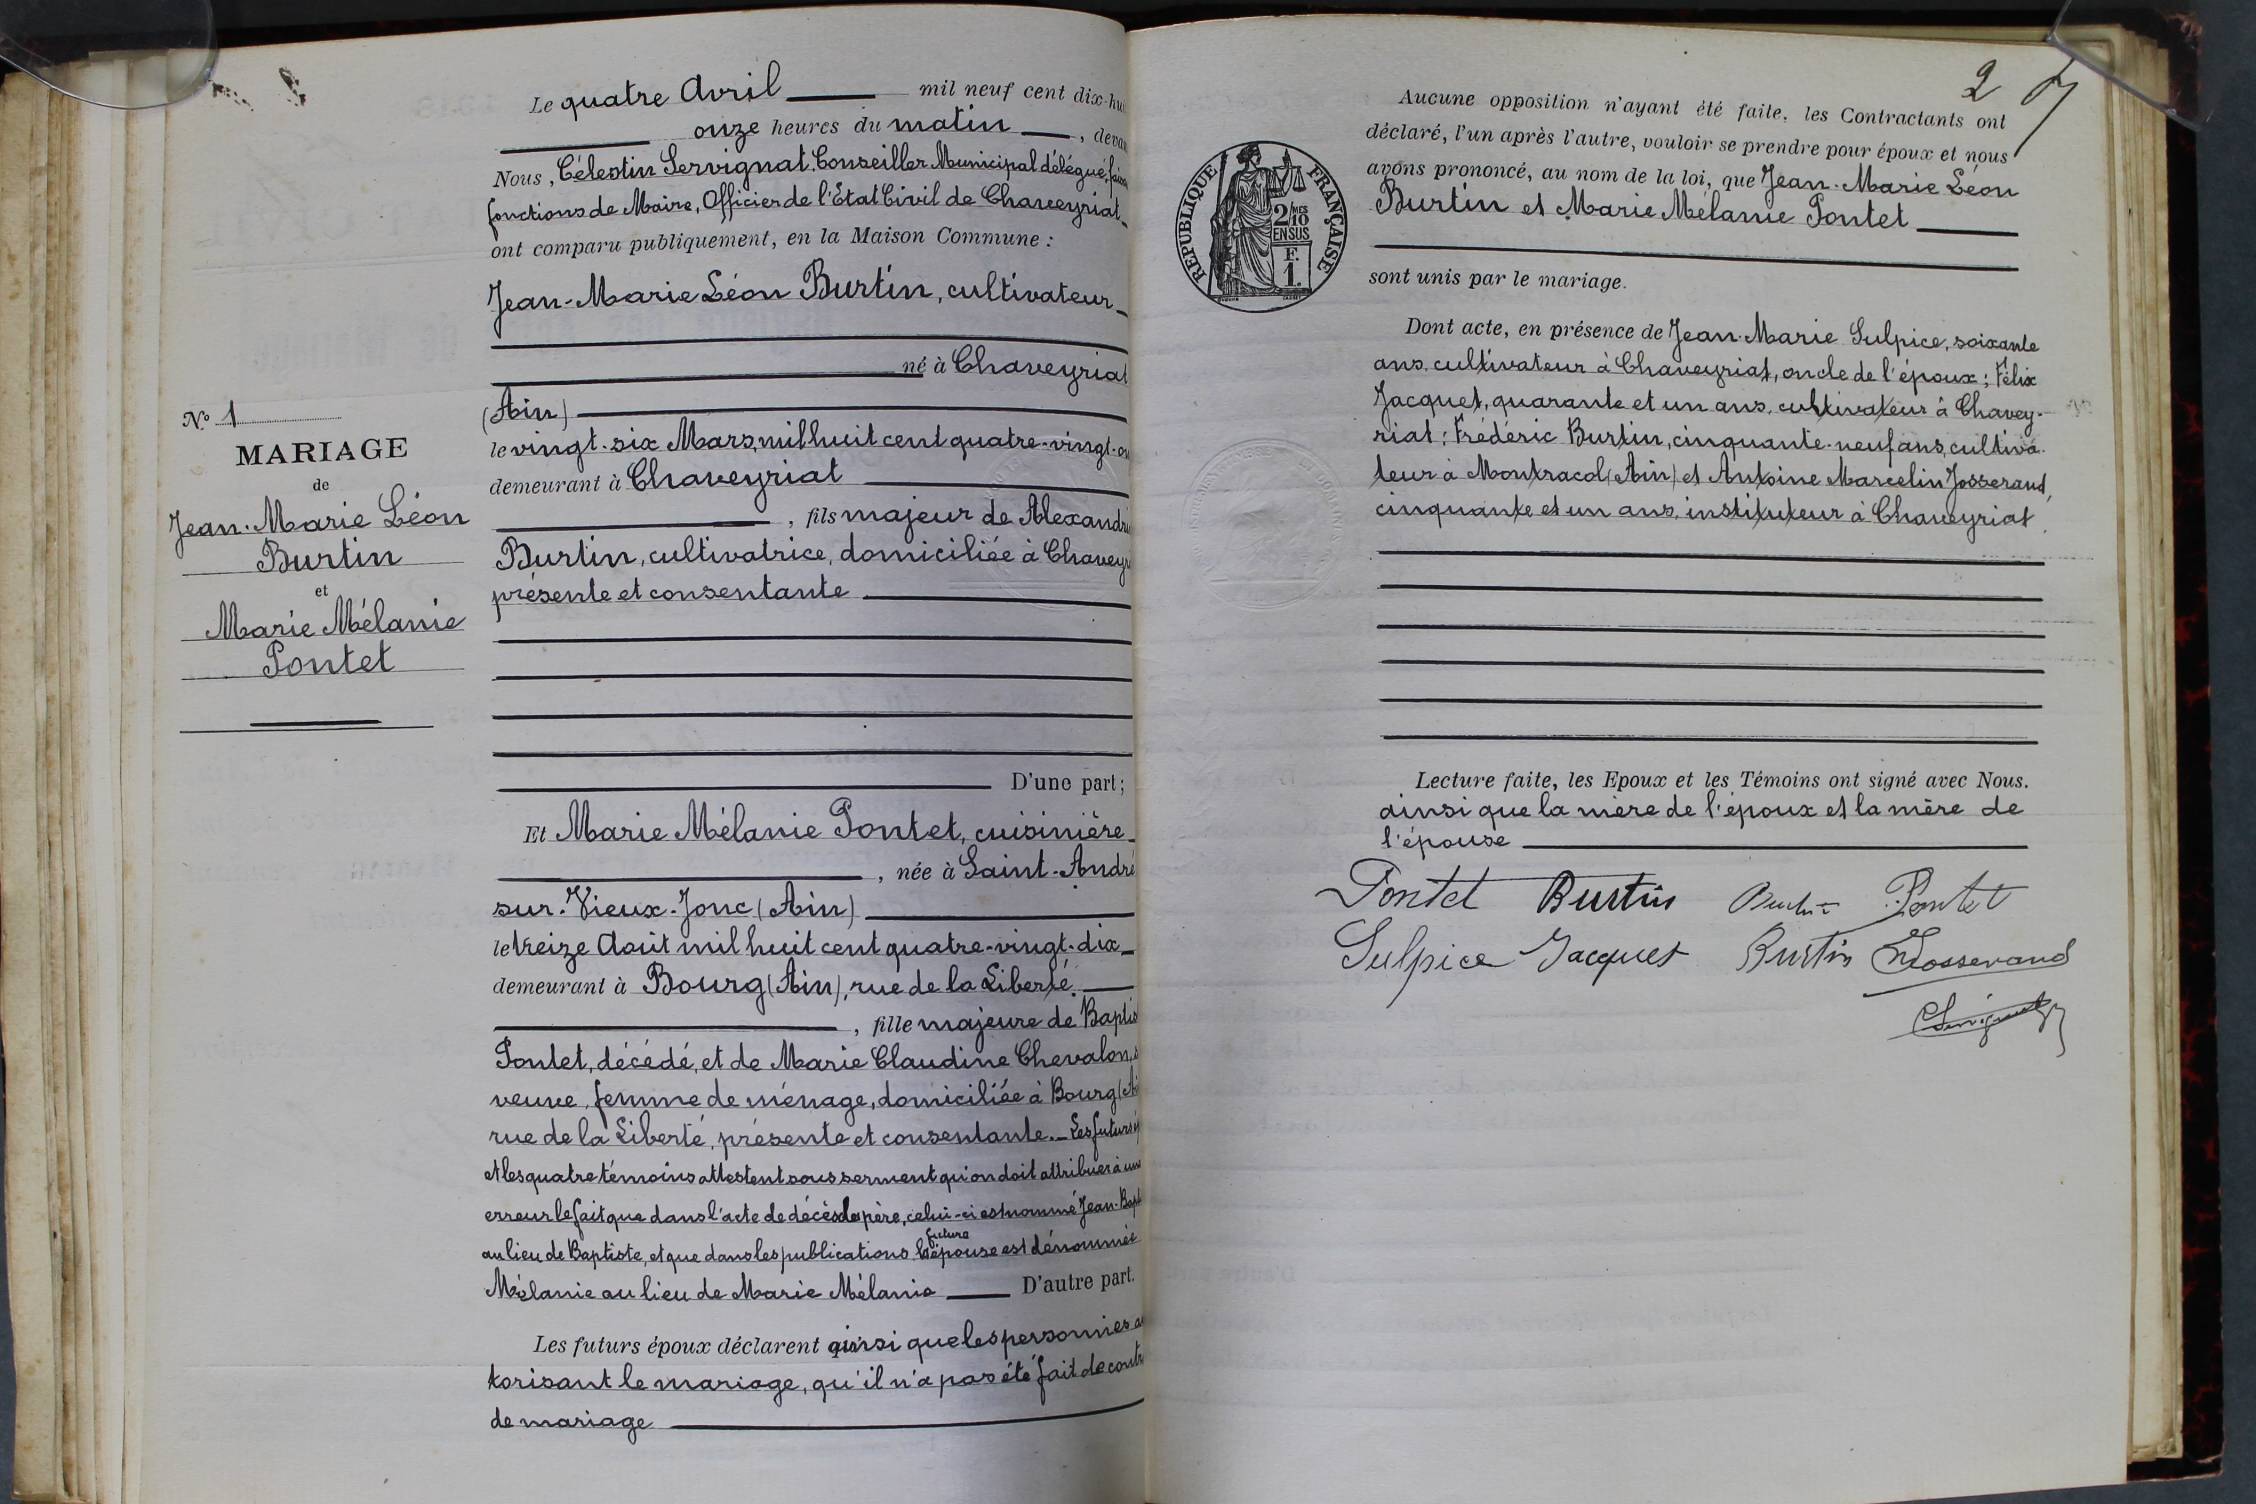 Le quatre Avril mil neuf cent dix-hu
onze heures du matin, deva
Nous, Célestin Servignat Conseiller Municipal délégué, fais
fonctions de Maire, Officier de l'Etat Civil de Chaveyriat
ont comparu publiquement, en la Maison Commune :
Jean-Marie Léon Burtin, cultivateur
né à Chaveyriat
(Ain)
le vingt-six Mars, mil huit cent quatre-vingt-on
demeurant à Chaveyriat
, fils majeur de Alexandri
Burtin, cultivatrice, domiciliée à Chavey
présente et consentante
D'une part;
Et Marie Mélanie Pontet, cuisinière
, née à Saint-André
sur-Vieux-Jonc (Ain)
le treize Août mil huit cent quatre-vingt-dix
demeurant à Bourg (Ain), rue de la Liberté.
, fille majeure de Baptis
Pontet, décédé, et de Marie Claudine Chevalon, s
veuve, femme de ménage, domiciliée à Bourg (Ai
rue de la Liberté, présente et consentante. Les futurs é
et les quatre témoins attestent sous serment qu'on doit attribuer à une
erreur le fait que dans l'acte de décès du père, celui-ci est nommé Jean-Bapt
future
au lieu de Baptiste, et que dans les publications la épouse est dénommée
Mélanie au lieu de Marie Mélanie D'autre part.
Les futurs époux déclarent ainsi que les personnes au
torisant le mariage, qu'il n'a pas été fait de contr
de mariage
N.º 1
MARIAGE
de
Jean-Marie Léon
Burtin
et
Marie Mélanie
Pontet
2
Aucune opposition n'ayant été faite, les Contractants ont
déclaré, l'un après l'autre, vouloir se prendre pour époux et nous
avons prononcé, au nom de la loi, que Jean-Marie Léon
Burtin et Marie Mélanie Pontet
sont unis par le mariage.
RÉPUBLIQUE FRANÇAISE
2/MES
10
EN SUS
F.
1.
Dont acte, en présence de Jean-Marie Sulpice, soixante
ans, cultivateur à Chaveyriat, oncle de l'époux ; Félix
Jacquet, quarante et un ans, cultivateur à Chavey-
riat ; Frédéric Burtin, cinquante-neuf ans, cultiva-
teur à Montracol (Ain) et Antoine Marcelin Josserand,
cinquante et un ans, instituteur à Chaveyriat.
Lecture faite, les Epoux et les Témoins ont signé avec Nous.
ainsi que la mère de l'époux et la mère de
l'épouse
Pontet Burtin Burtin Pontet
Sulpice Jacquet Burtin Josserand
CServignat